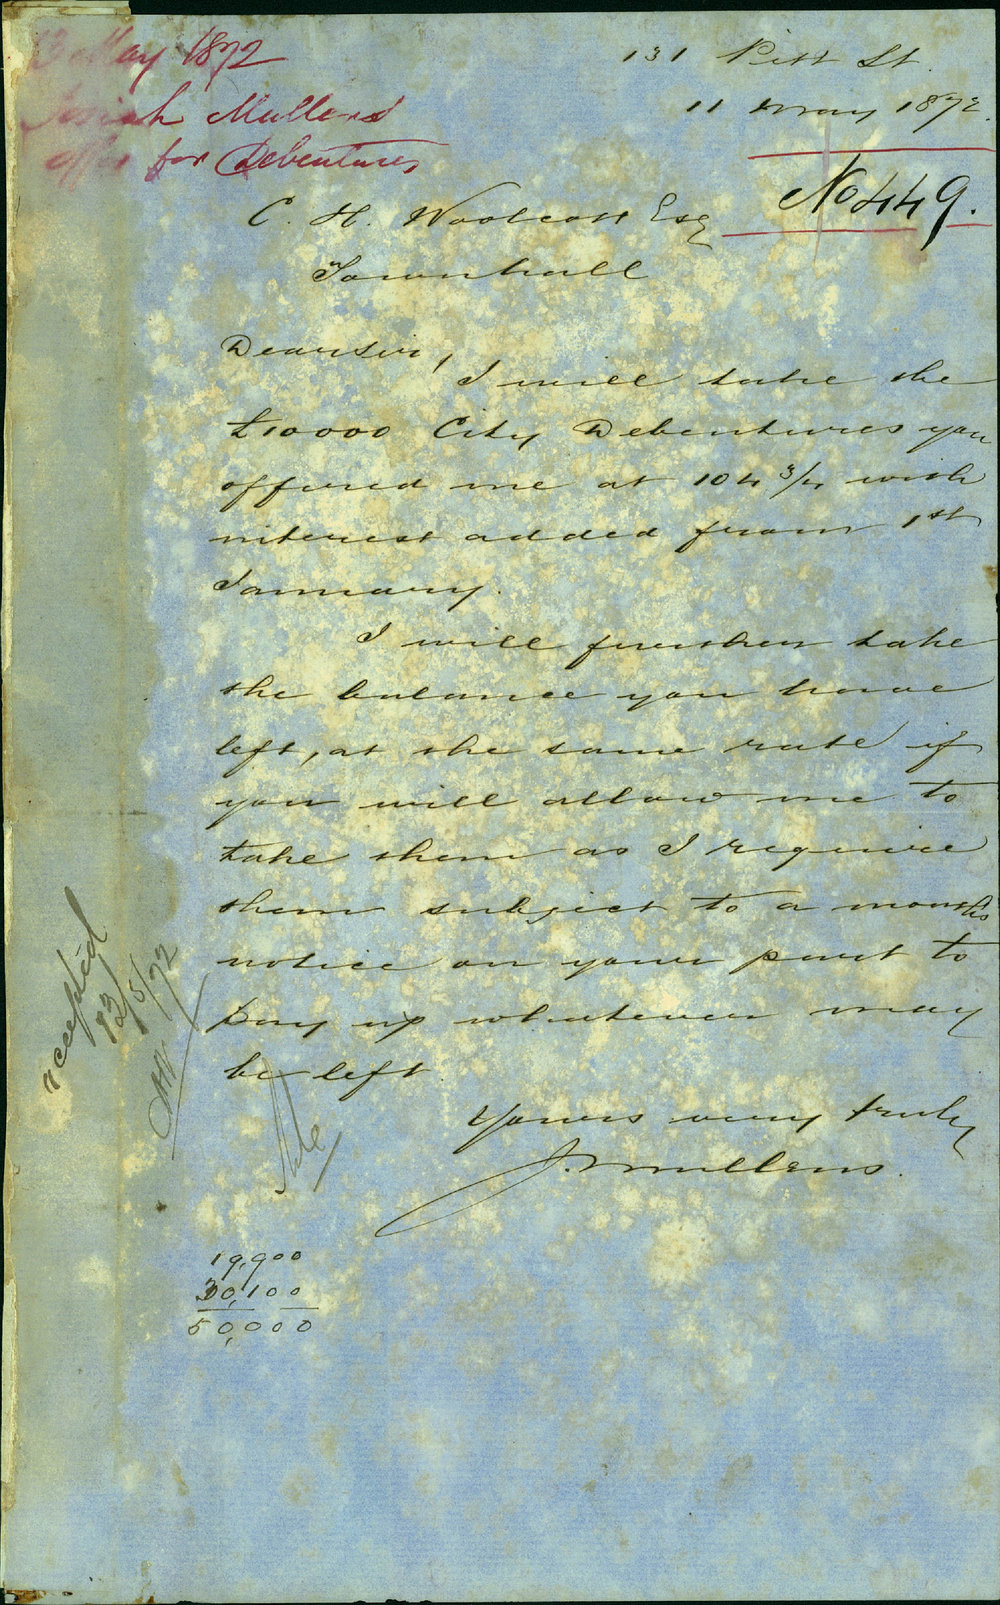 13 May 1872
Josiah Mullens
offer for Debentures
131 Pitt St.
11 May 1872.
No 449.
C. H. Woolcott Esq
Townhall
Dear Sir,
I will take the
£10000 City Debentures you
offered me at 104 3/4 with
interest added from 1st
January.
I will further take
the balance you have
left, at the same rate if
you will allow me to
take them as I require
them subject to a months
notice on your part to
pay up whatever may
be left
Yours very truly
J. Mullens.
accepted
13/5/72
19,900
30,100
50,000